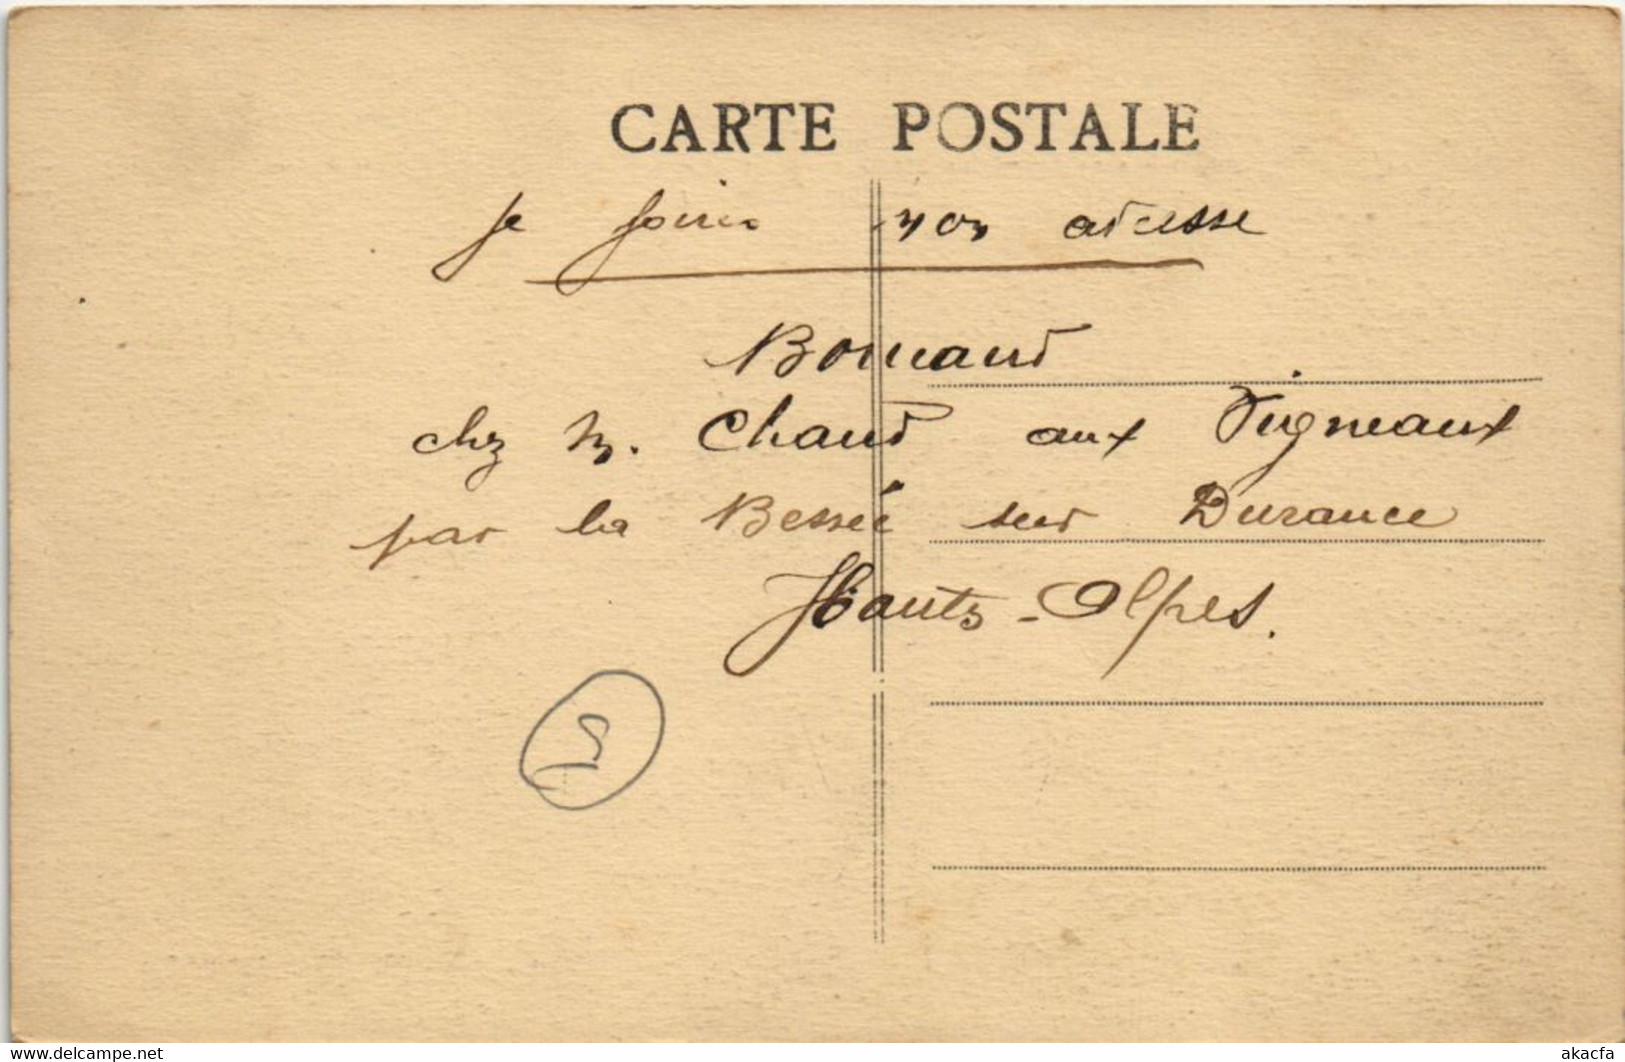 CARTE POSTALE
Je adresse
chez M. Chaud aux Vigneaux
par la Bessée sur Durance
Hautes-Alpes.
www.delcampe.net
akacfa